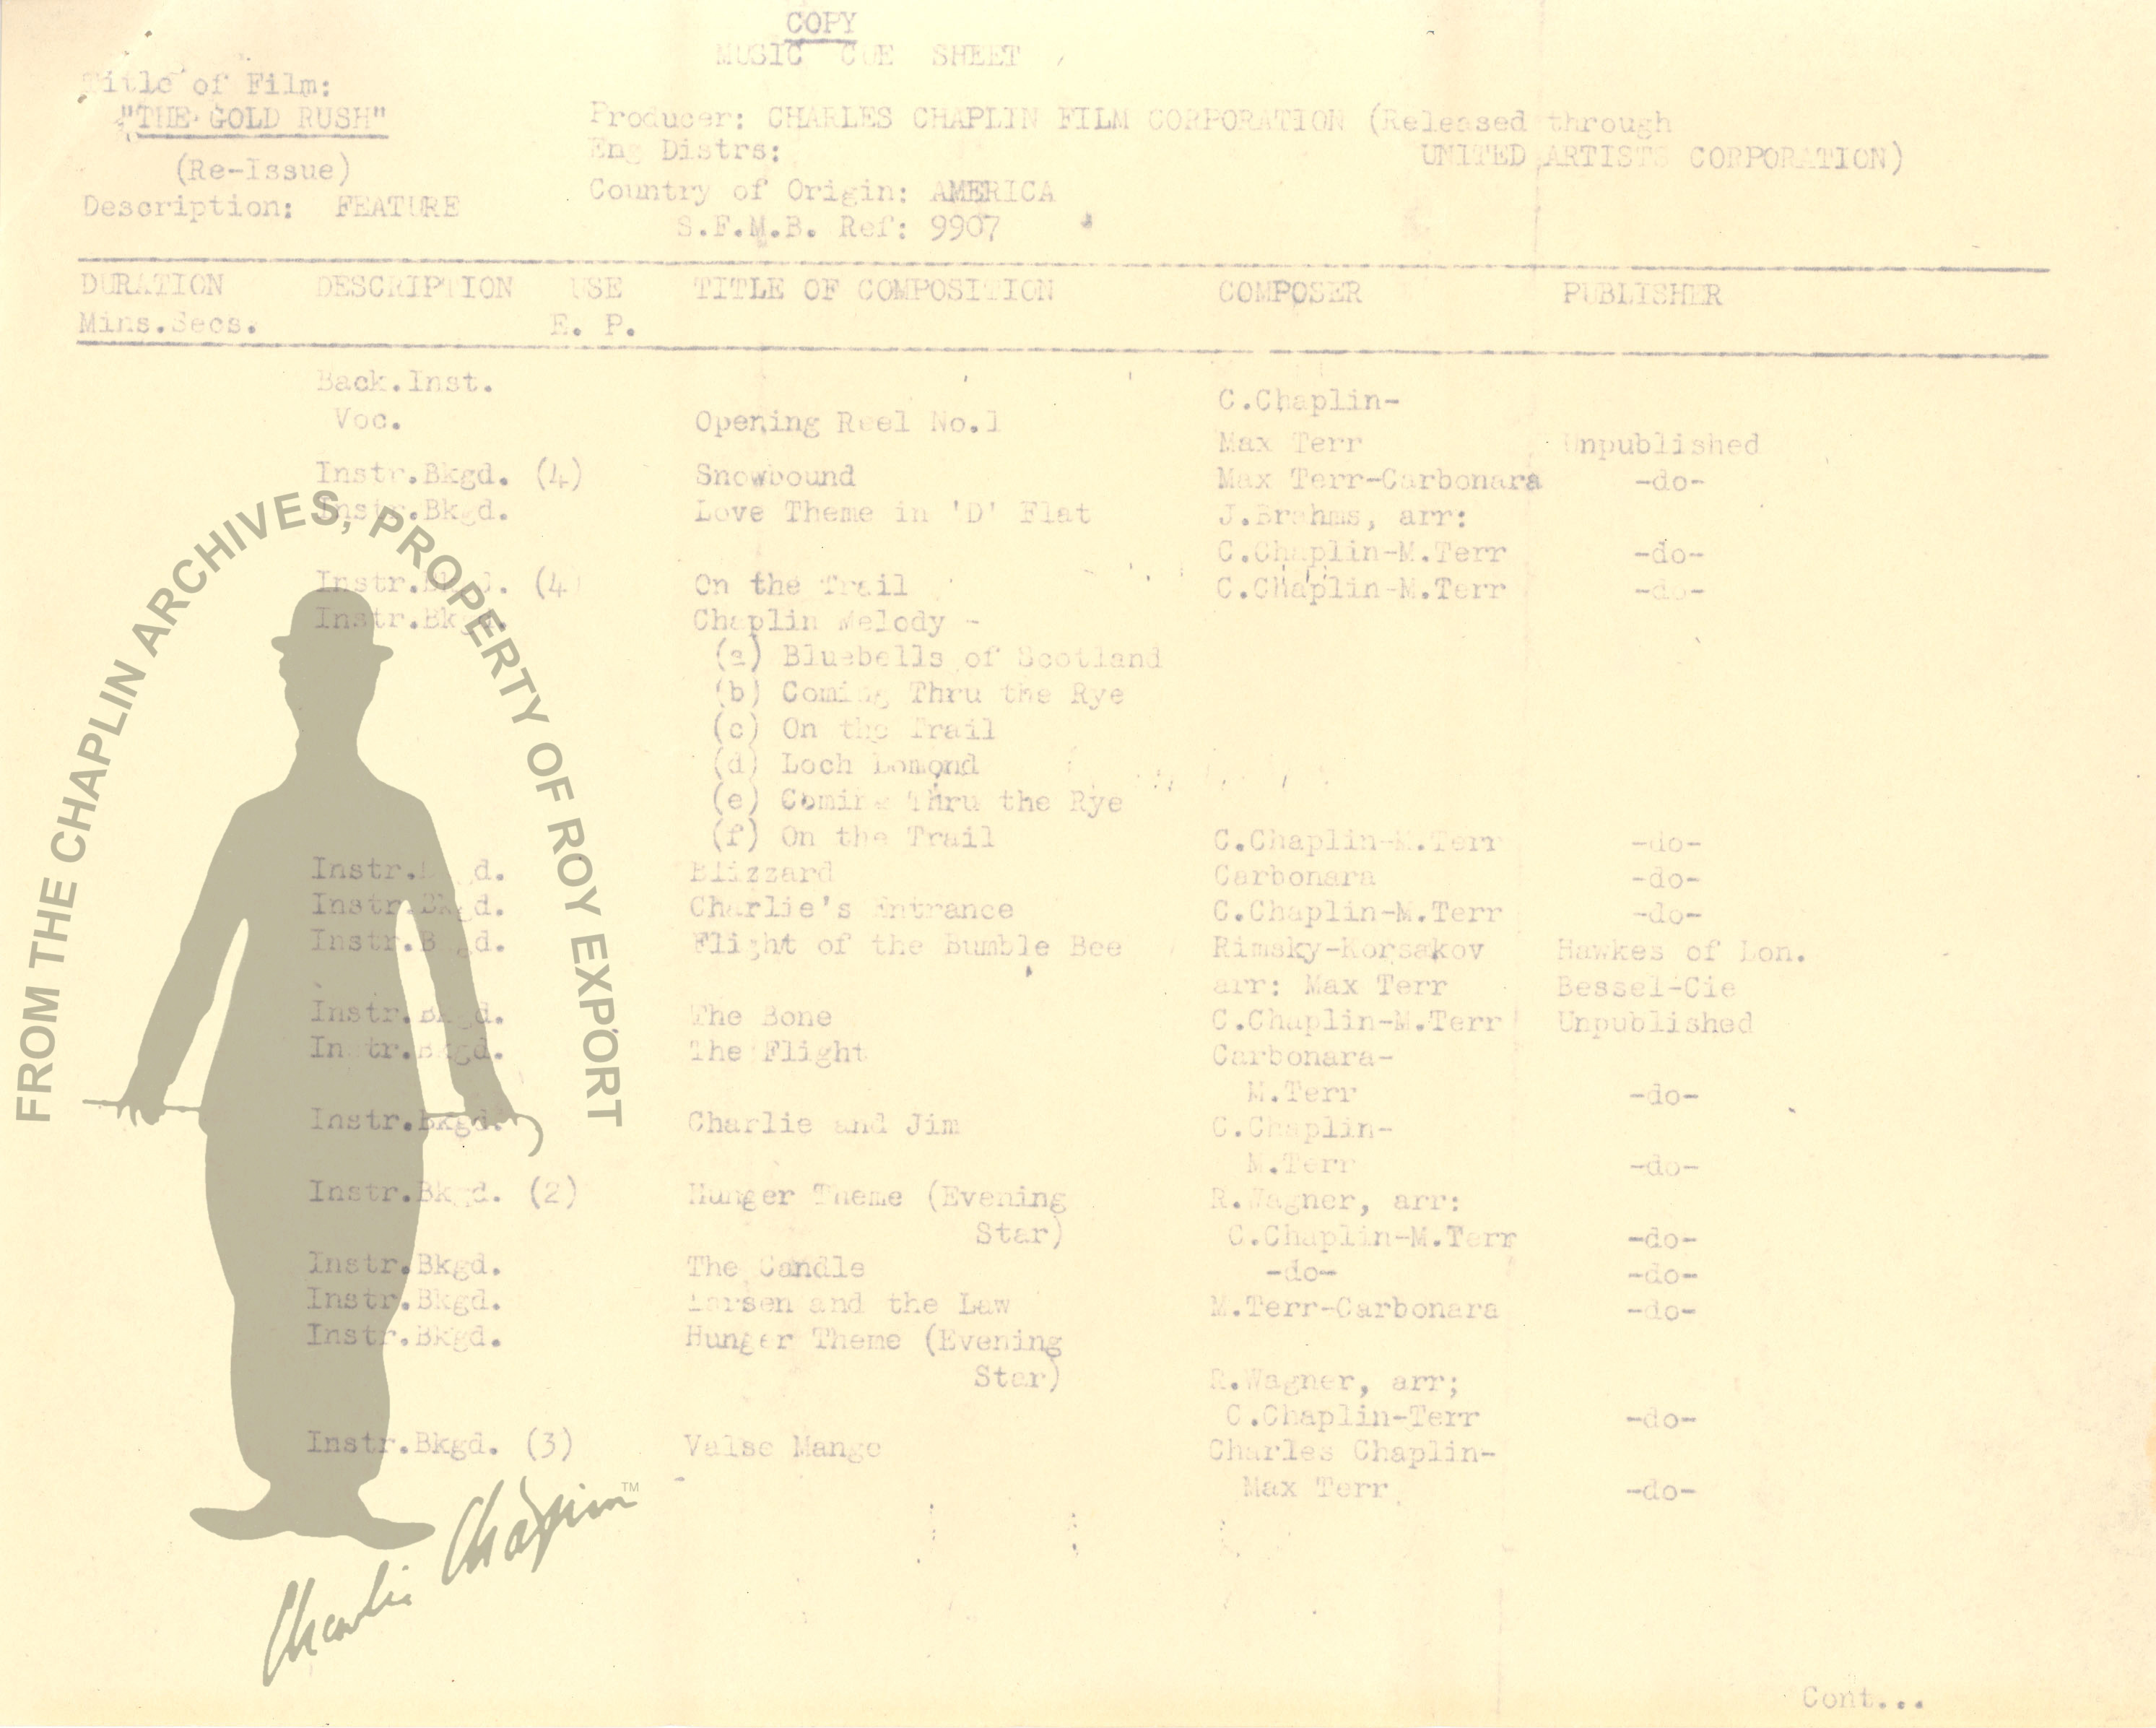 COPY
MUSIC CUE SHEET
Title of Film:
"THE GOLD RUSH"
(Re-Issue)
Description: FEATURE
Producer: CHARLES CHAPLIN FILM CORPORATION (Released through
UNITED ARTISTS CORPORATION)
Eng Distrs:
Country of Origin: AMERICA
S.F.M.B. Ref: 9907
DURATION DESCRIPTION USE TITLE OF COMPOSITION COMPOSER PUBLISHER
Mins.Secs. E. P.
Back.Inst.
C.Chaplin-
Voc. Opening Reel No.1
Max Terr Unpublished
Instr.Bkgd. (4) Snowbound Max Terr-Carbonara -do-
Instr.Bkgd. Love Theme in 'D' Flat J.Brahms, arr:
C.Chaplin-M.Terr -do-
Instr.Bkgd. (4) On the Trail C.Chaplin-M.Terr -do-
Instr.Bkgd. Chaplin Melody -
(a) Bluebells of Scotland
(b) Coming Thru the Rye
(c) On the Trail
(d) Loch Lomond
(e) Coming Thru the Rye
(f) On the Trail C.Chaplin-M.Terr -do-
Instr.Bkgd. Blizzard Carbonara -do-
Instr.Bkgd. Charlie's Entrance C.Chaplin-M.Terr -do-
Instr.Bkgd. Flight of the Bumble Bee Rimsky-Korsakov Hawkes of Lon.
arr: Max Terr Bessel-Cie
Instr.Bkgd. The Bone C.Chaplin-M.Terr Unpublished
Instr.Bkgd. The Flight Carbonara-
M.Terr -do-
Instr.Bkgd. Charlie and Jim C.Chaplin-
M.Terr -do-
Instr.Bkgd. (2) Hunger Theme (Evening R.Wagner, arr:
Star) C.Chaplin-M.Terr -do-
Instr.Bkgd. The Candle -do- -do-
Instr.Bkgd. Larsen and the Law M.Terr-Carbonara -do-
Instr.Bkgd. Hunger Theme (Evening
Star) R.Wagner, arr;
C.Chaplin-Terr -do-
Instr.Bkgd. (3) Valse Mango Charles Chaplin-
Max Terr -do-
Cont...
FROM THE CHAPLIN ARCHIVES, PROPERTY OF ROY EXPORT
Charlie Chaplin™